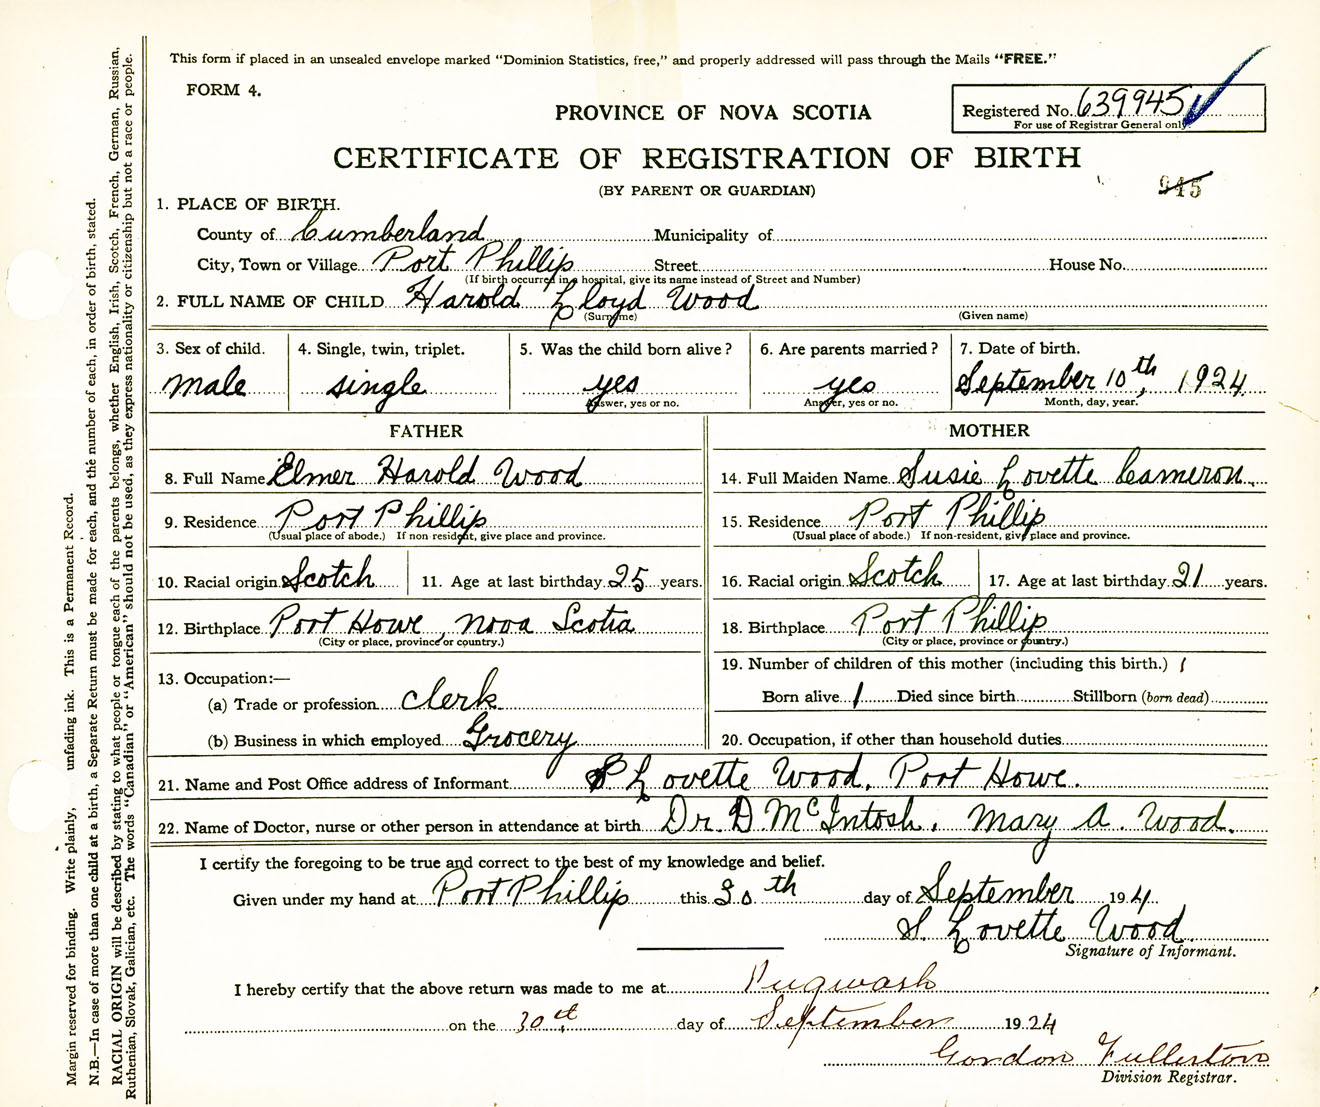 This form if placed in an unsealed envelope marked "Dominion Statistics, free," and properly addressed will pass through the Mails "FREE."
FORM 4.
PROVINCE OF NOVA SCOTIA
Registered No. 639945
For use of Registrar General only.
CERTIFICATE OF REGISTRATION OF BIRTH
(BY PARENT OR GUARDIAN)
945
1. PLACE OF BIRTH.
County of Cumberland Municipality of
City, Town or Village Port Phillip Street House No.
(If birth occurred in a hospital, give its name instead of Street and Number)
2. FULL NAME OF CHILD Harold Lloyd Wood
(Surname) (Given name)
3. Sex of child. 4. Single, twin, triplet. 5. Was the child born alive? 6. Are parents married? 7. Date of birth.
male single yes yes September 10th, 1924
Answer, yes or no. Answer, yes or no. Month, day, year.
FATHER MOTHER
8. Full Name Elmer Harold Wood 14. Full Maiden Name Susie Lovette Cameron
9. Residence Port Phillip 15. Residence Port Phillip
(Usual place of abode.) If non-resident, give place and province. (Usual place of abode.) If non-resident, give place and province.
10. Racial origin Scotch 11. Age at last birthday 25 years. 16. Racial origin Scotch 17. Age at last birthday 21 years.
12. Birthplace Port Howe, Nova Scotia 18. Birthplace Port Phillip
(City or place, province or country.) (City or place, province or country.)
13. Occupation:— 19. Number of children of this mother (including this birth.) 1
(a) Trade or profession clerk Born alive 1 Died since birth Stillborn (born dead)
(b) Business in which employed Grocery 20. Occupation, if other than household duties
21. Name and Post Office address of Informant S Lovette Wood, Port Howe.
22. Name of Doctor, nurse or other person in attendance at birth Dr. D. McIntosh, Mary A. Wood.
I certify the foregoing to be true and correct to the best of my knowledge and belief.
Given under my hand at Port Phillip this 30th day of September 194
S. Lovette Wood
Signature of Informant.
I hereby certify that the above return was made to me at Pugwash
on the 30th day of September 1924
Gordon Fullerton
Division Registrar.
Margin reserved for binding. Write plainly, unfading ink. This is a Permanent Record.
N.B.—In case of more than one child at a birth, a Separate Return must be made for each, and the number of each, in order of birth, stated.
RACIAL ORIGIN will be described by stating to what people or tongue each of the parents belongs, whether English, Irish, Scotch, French, German, Russian,
Ruthenian, Slovak, Galician, etc. The words "Canadian" or "American" should not be used, as they express nationality or citizenship but not a race or people.